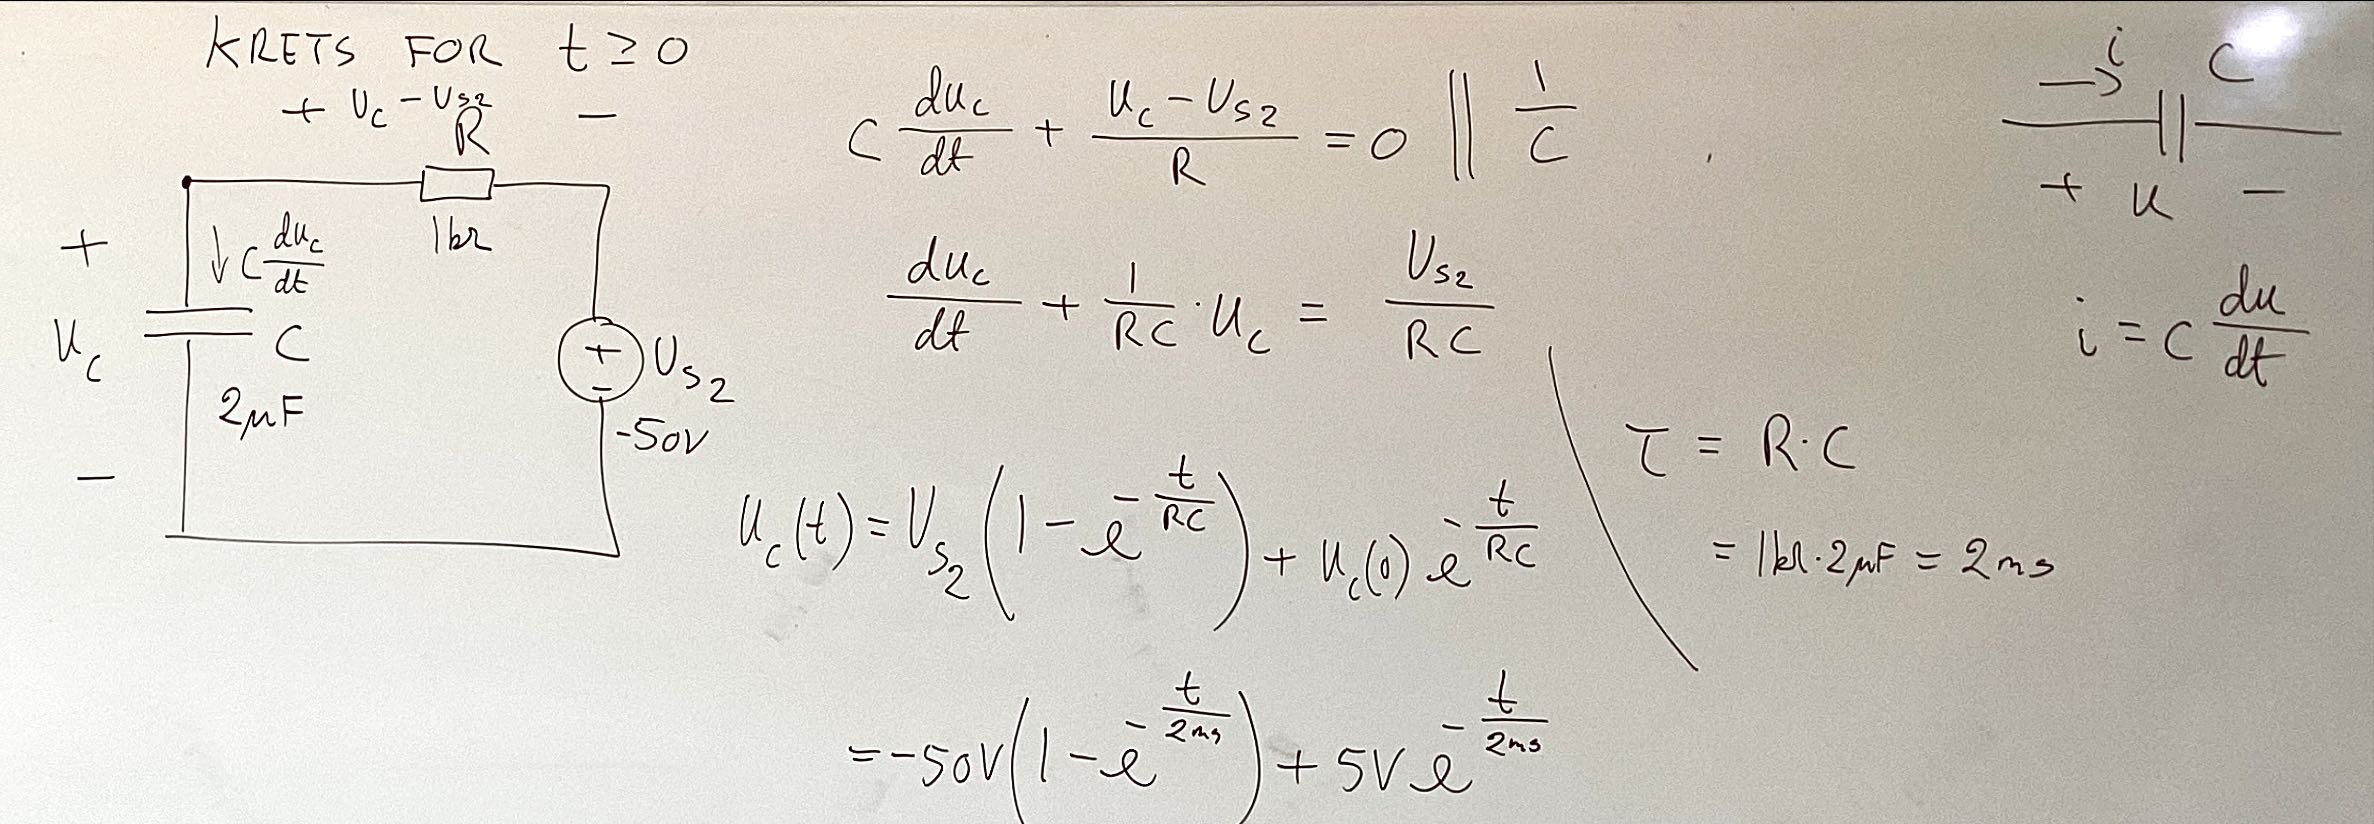 KRETS FOR t ≥ 0
+ U_C - U_S2 -
R
1kΩ
+
U_C
-
↓ C du_C/dt
C
2μF
+
-
U_S2
-50V
C du_C/dt + (u_C - U_S2)/R = 0 || 1/C
du_C/dt + 1/RC · u_C = U_S2/RC
u_C(t) = U_S2 (1 - e^(-t/RC)) + u_C(0) e^(-t/RC)
= -50V (1 - e^(-t/2ms)) + 5V e^(-t/2ms)
τ = R·C
= 1kΩ · 2μF = 2ms
i → C
+ u -
i = C du/dt